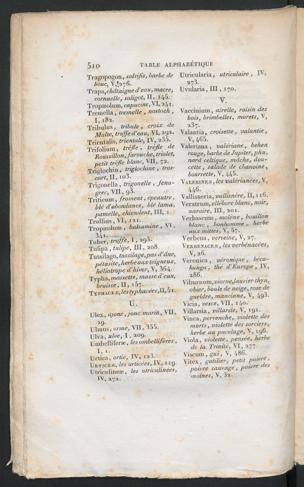 510 TABLE ALPHABÉTIQUE
Tragopogon, salsifis, barbe de
bouc, V, 276.
Trapa, châtaigne d'eau, macre,
cornuelle, saligot, II, 146.
Tropæolum, capucine, VI, 241.
Tremella, tremelle, nostoch,
I, 182.
Tribulus, tribule, croix de
Malte, truffe d'eau, VI, 292.
Trientalis, trientale, IV, 235.
Trifolium, trèfle, trèfle de
Roussillon, farouche, triolet,
petit trèfle blanc, VII, 72.
Triglochin, triglochine, troscart,
II, 103.
Trigonella, trigonelle, fenugrec,
VII, 93.
Triticum, froment, épeautre,
blé d'abondance, blé lama,
pamelle, chiendent, III, 1.
Trollius, VI,
Tropæolum, VI,
341.
Tuber, truffe, I, 293.
Tulipa, tulipe, III, 208.
Tussilago, tussilage, pas d'âne,
pétasite, herbe aux teigneux,
héliotrope d'hiver, V, 364.
Typha, massette, masse d'eau,
II, 157.
TYPHACEÆ, les typhacées, II, 51.
U.
Ulex, ajonc, jonc marin, VII,
29.
Ulmus, orme, VII, 355.
Ulva, ulve, I, 209.
Umbelliferæ, les ombellifères,
I, 1.
Urtica, ortie, IV, 123.
URTICEÆ, les urticées, IV, 119.
Utriculinæ, les utriculinées,
IV, 272.
Utricularia, utriculaire, IV,
273.
Uvularia, III, 170.
V.
Vaccinium, airelle, raisin des
bois, brimbelles, morets, V,
237.
Valantia, croisette, valantie,
V, 465.
Valeriana, valériane, behen
rouge, barbe de Jupiter, phu,
nard celtique, mâche, doucette,
salade de chanoine,
boursette, V, 445.
VALERINEÆ, les valérianées, V,
446.
Vallisneria, vallisnère, II, 116.
Veratrum, ellébore blanc, noir,
varaire, III, 201.
Verbascum, molène, bouillon
blanc, bonhomme, herbe
aux mittes, V, 57.
Verbena, verveine, V, 27.
VERBENACEÆ, les verbénacées,
V, 26.
Veronica, véronique, beccabunga,
thé d'Europe, IV,
286.
Viburnum, viorne, laurier-thym,
obier, boule de neige, rose de
gueldre, mancienne, V, 493.
Vicia, vesce, VII, 140.
Villarsia, villarsie, V, 191.
Vinca, pervenche, violette des
morts, violette des sorciers,
herbe au pucelage, V, 196.
Viola, violette, pensée, herbe
de la Trinité, VI, 277.
Viscum, gui, V, 486.
Vitex, gatilier, petit poivre,
poivre sauvage, poivre des
moines, V, 32.